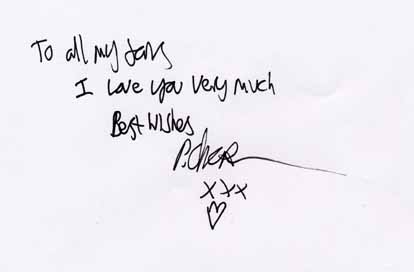 To all my fans
I Love you very much
Best Wishes
P. Cher
xxx